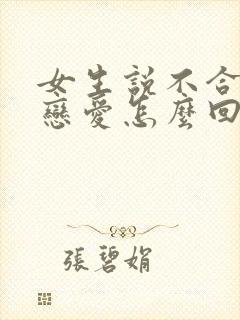 女生說不合
戀愛怎麼回
張碧娟